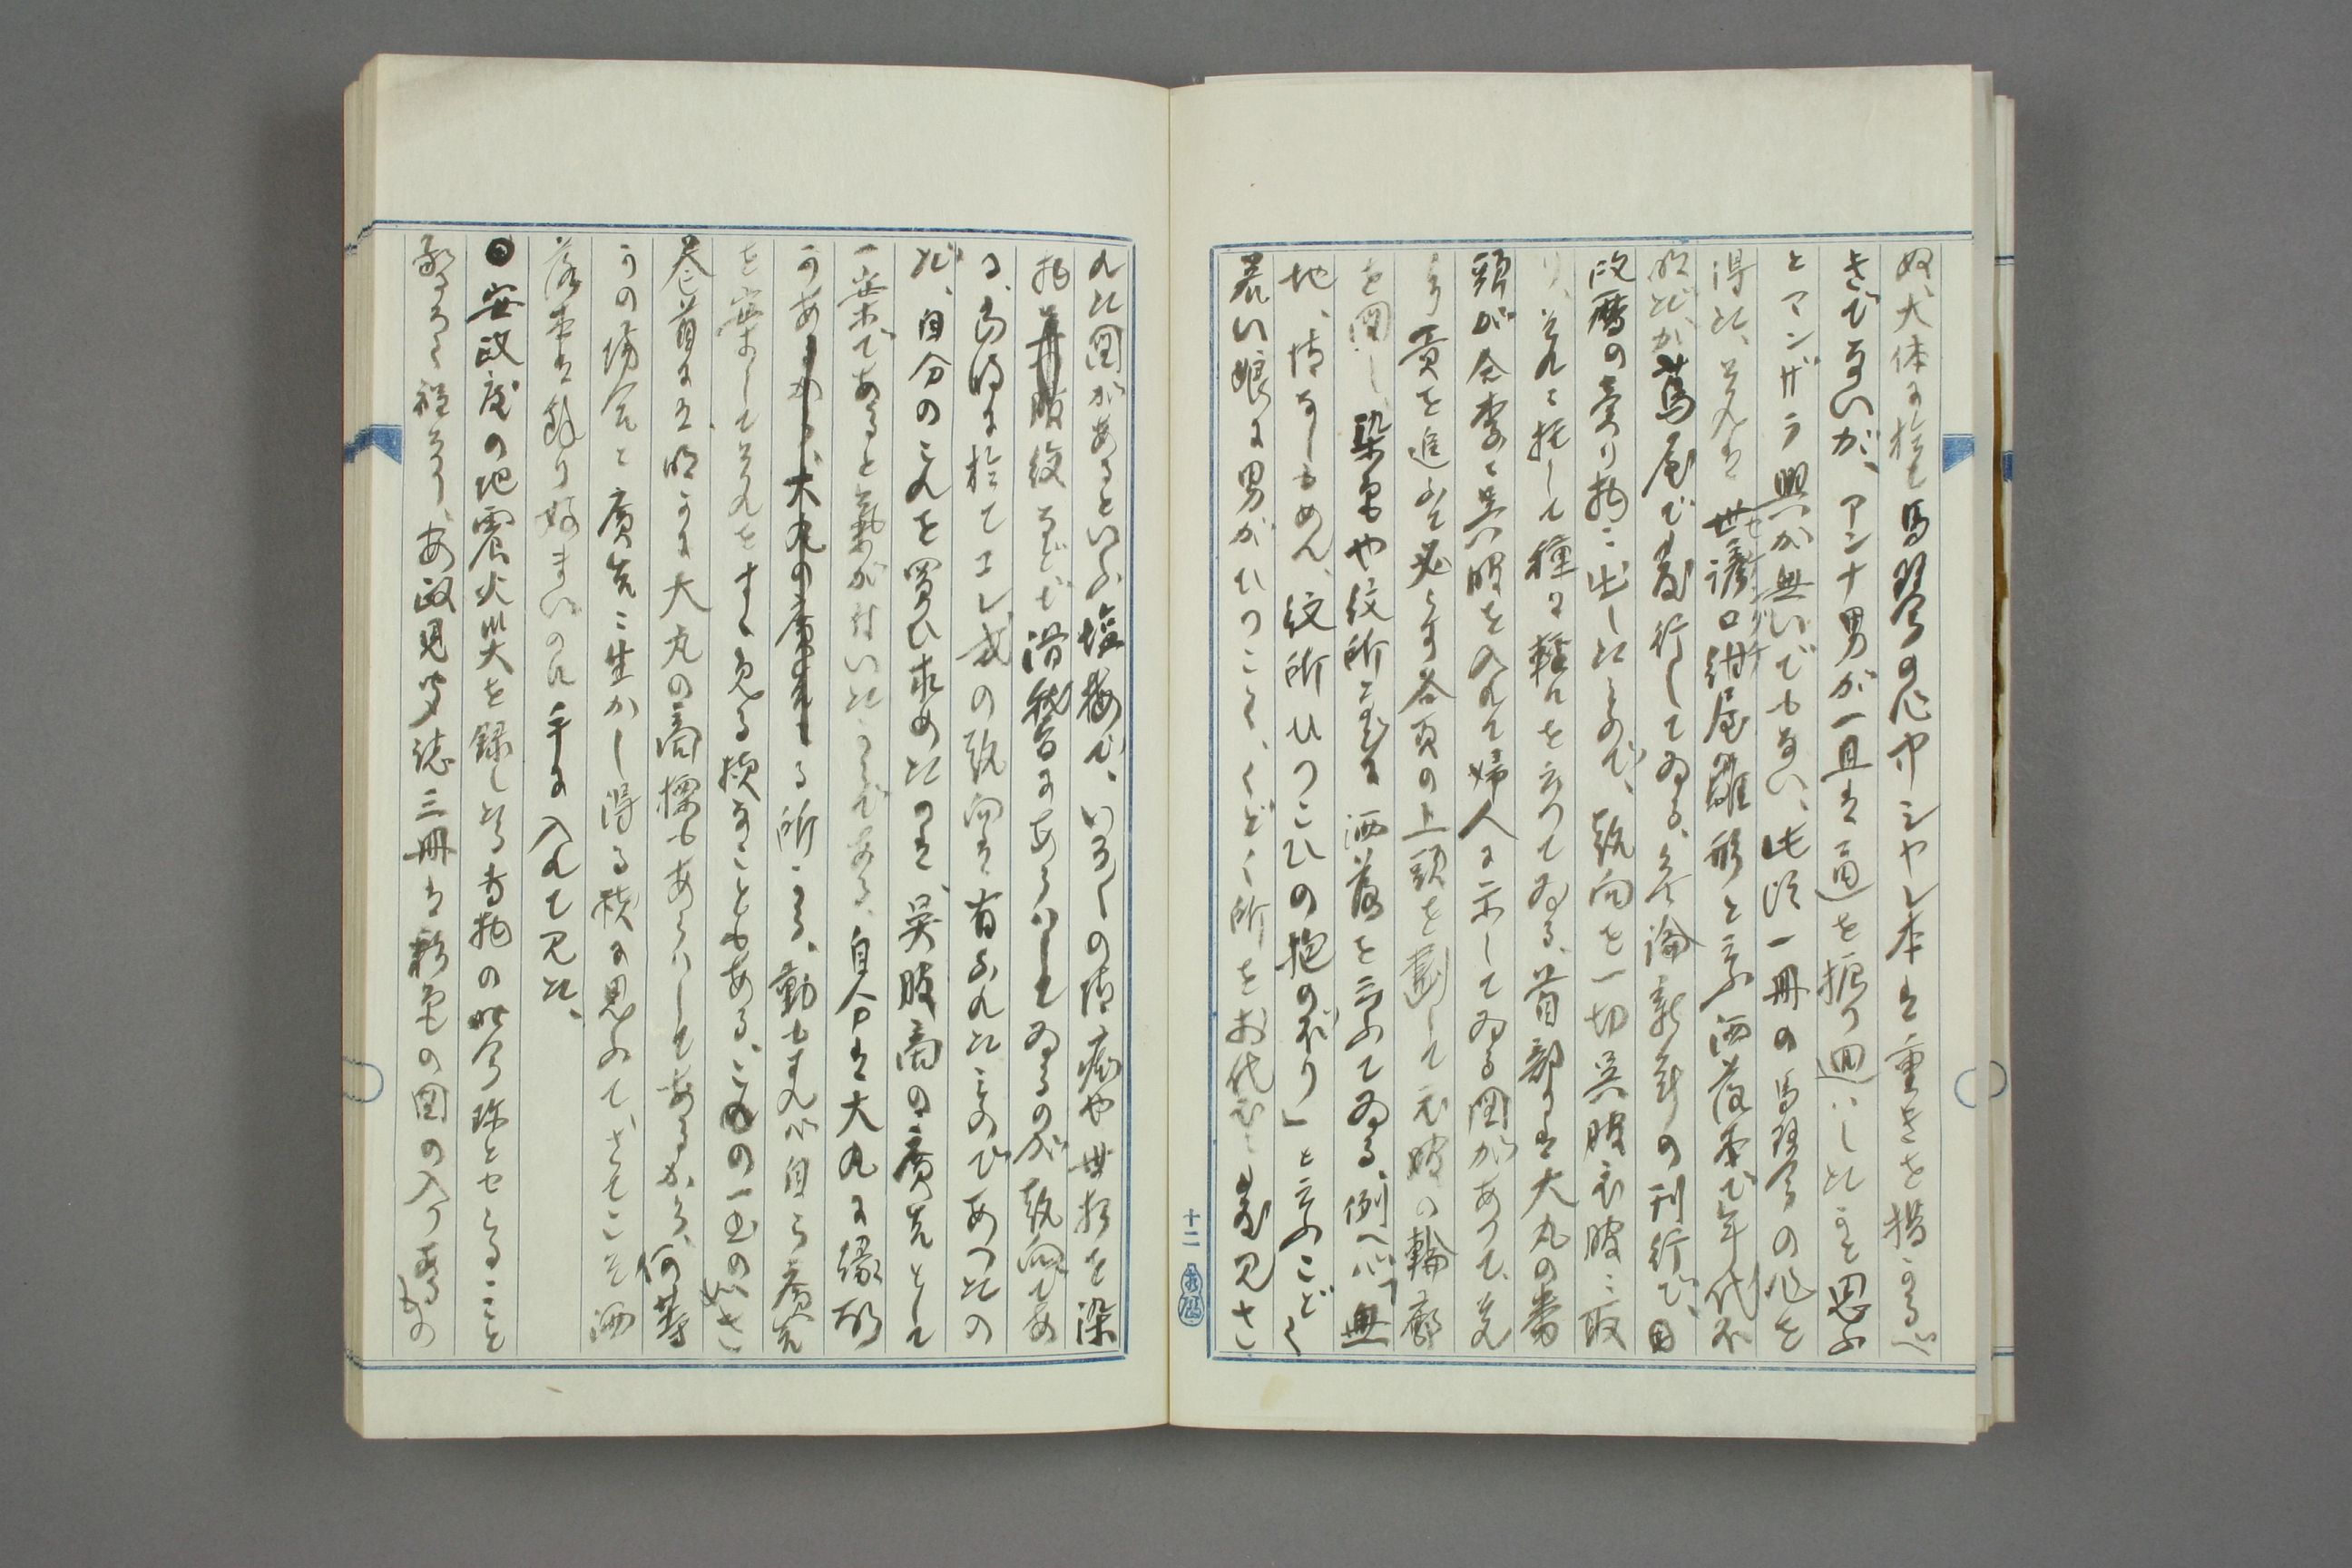 ぬ、大体に於て馬琴の作やシヤレ本は重きを措かるべ
きでないが、アンナ男が一旦は通を振り廻はしたかと思ふ
とアンザラ興が無いでもない、此頃一冊の馬琴の作を
得た、それは世諺口紺屋雛形と云ふ洒落本で年代不
明だが蔦屋で発行してゐる、勿論新年の刊行で、
改暦の売り物に出したもので、趣向を一切呉服衣服に取
り、それに托して種々軽口を云つてゐる、首部には大丸の番
頭が会李に呉服を入れて婦人に示してゐる図があつて、それ
より頁を追ふて必らず各頁の上頭を劃して衣服の輪廓
を図し、染色や紋所に洒落を云ふてゐる、例へば「無
地、情なしもめん、紋所ひつこひの抱のぼり」と云ふごとく
若い娘に男がひつこく、くどく所をお代に発見さ
れた図があるといふ塩梅で、いろくの情痴や世相を染
物呉服紋などで滑稽にあらはしてゐるのが趣向であ
る、当時に於てコレ式の趣向は有ふれたものであつたの
だ、自分のこれを買ひ求めたのは、呉服商の広告として
一案であると気が付いたからである、自分は大丸に縁故
のある所から、動もすれば自ら広告
を案じしてそれをすゝむる様なこともある、これの一書の如き
巻首には明かに大丸の商標もあらはしてあるから、何等
かの場合に広告に生かし得る様に思ふて、さてこそ洒
落本は余り好まないのに手に入れて見た、
●安政度の地震火災を録したる書物の昨今珍とせらるゝこと
夥ろく程なり、安政見聞誌三冊は彩色の図の入りたるもの
十二